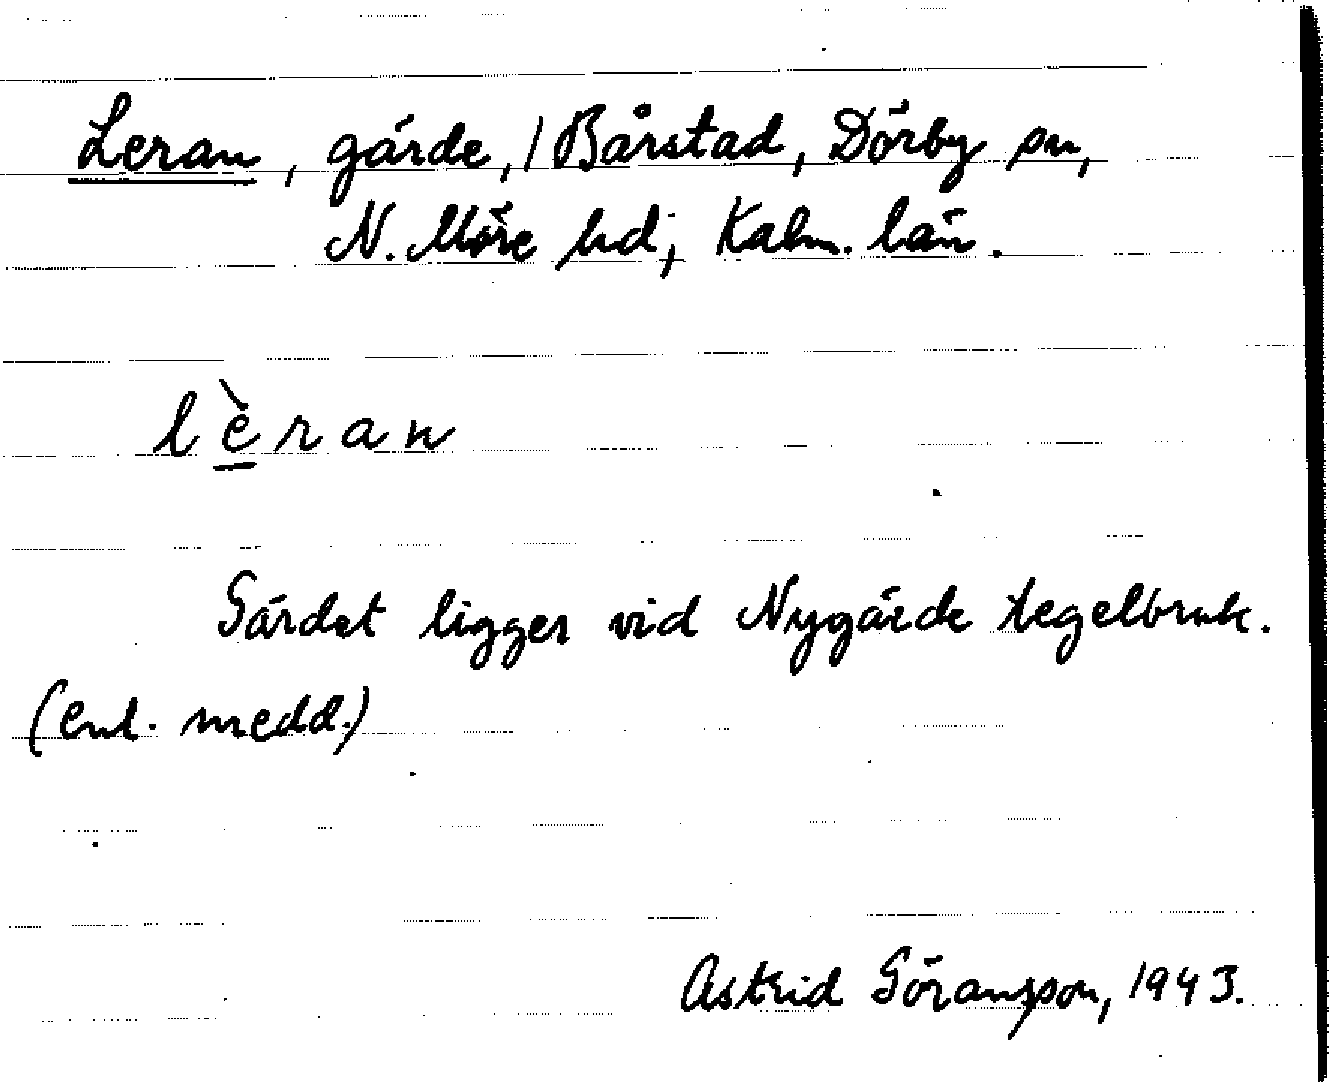 Leran, gärde, / Bårstad, Dörby sn,
N. Möre hd, Kalm. län.
lèran
Gärdet ligger vid Nygärde tegelbruk.
(enl. medd.)
Astrid Göransson, 1943.